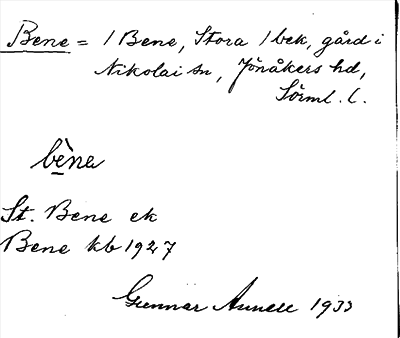 Bene = / Bene, Stora / bek, gård i
Nikolai sn, Jönåkers hd,
Sörml. l.
bèna
St. Bene ek
Bene kb 1927
Gunnar 1933